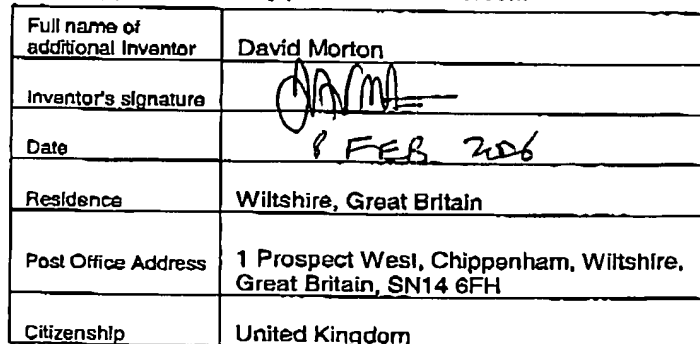 Full name of
additional Inventor
David Morton
Inventor's signature
Date
8 FEB 2006
Residence
Wiltshire, Great Britain
Post Office Address
1 Prospect West, Chippenham, Wiltshire,
Great Britain, SN14 6FH
Citizenship
United Kingdom